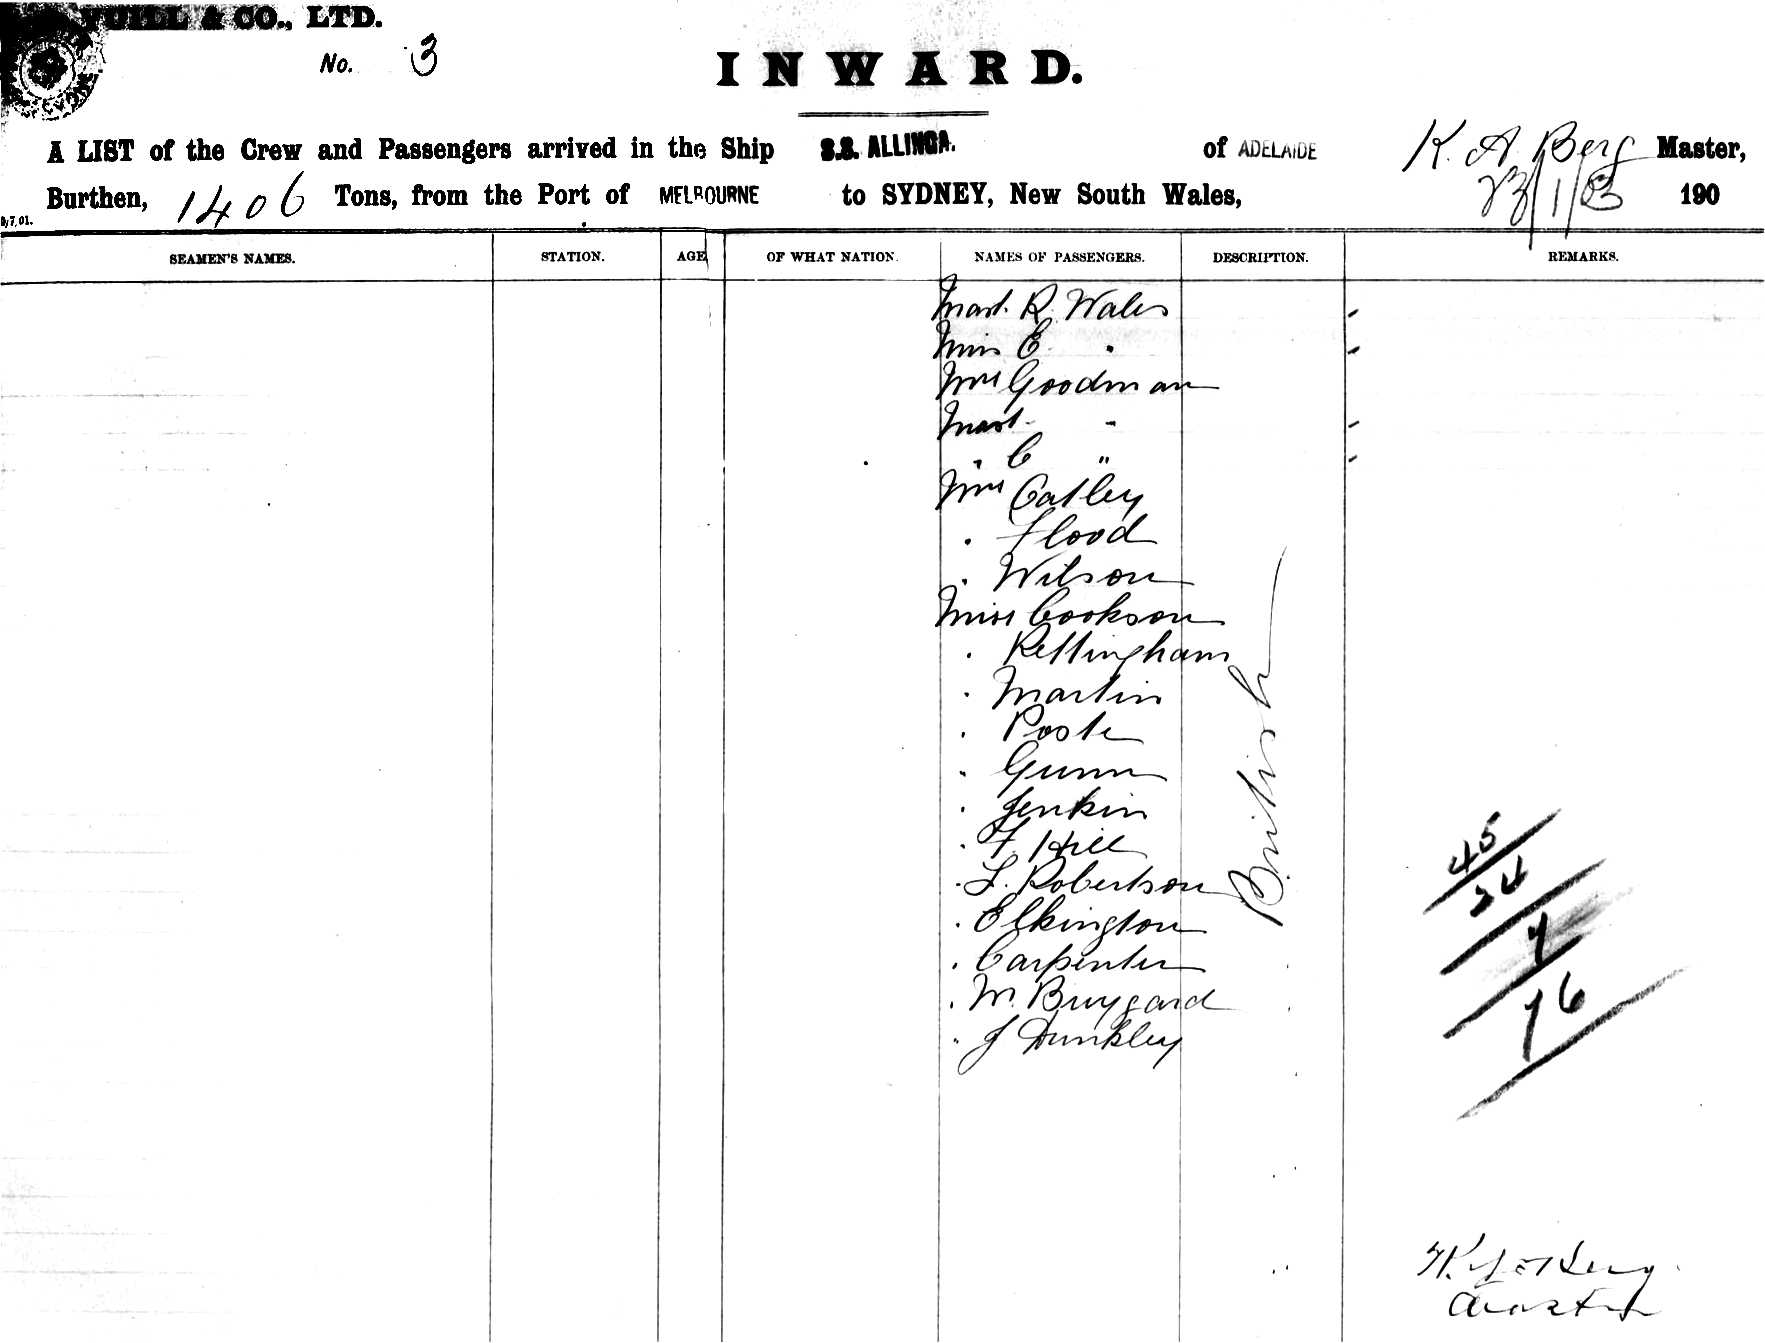 YUILL & CO., LTD.
No. 3
INWARD.
A LIST of the Crew and Passengers arrived in the Ship S.S. ALLINGA. of ADELAIDE K. A. Berg Master,
Burthen, 1406 Tons, from the Port of MELBOURNE to SYDNEY, New South Wales, 23/1/3 190
9/7/01.
SEAMEN'S NAMES. STATION. AGE OF WHAT NATION. NAMES OF PASSENGERS. DESCRIPTION. REMARKS.
Mast. R. Wales
Miss E "
Mrs Goodman
Mast "
" C "
Mrs Catley
" Flood
" Wilson
Miss Cookson
" Rettingham
" Martin
" Poste
" Gunn
" Jenkin
" F. Hill
" L. Robertson
" Elkington
" Carpenter
" M. Buygard
" J Dunkley
British
45
24
7
76
Master